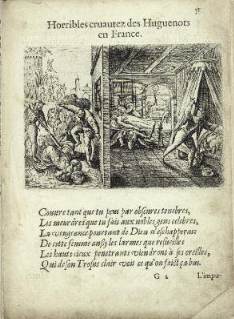 Horribles cruautez des Huguenots
en France.
Couure tant que tu peu par obscures tenebres,
Les meurdres que tu fais aux nobles gens celebres,
La vengeance pourtant de Dieu n'eschapperas
De cette femme aussy les larmes que
Les hauts cieux penetrants viendront à ses oreilles,
Qui de son Trosne clair voit ce qu'on faict ça bas.
G 2 L'impu-